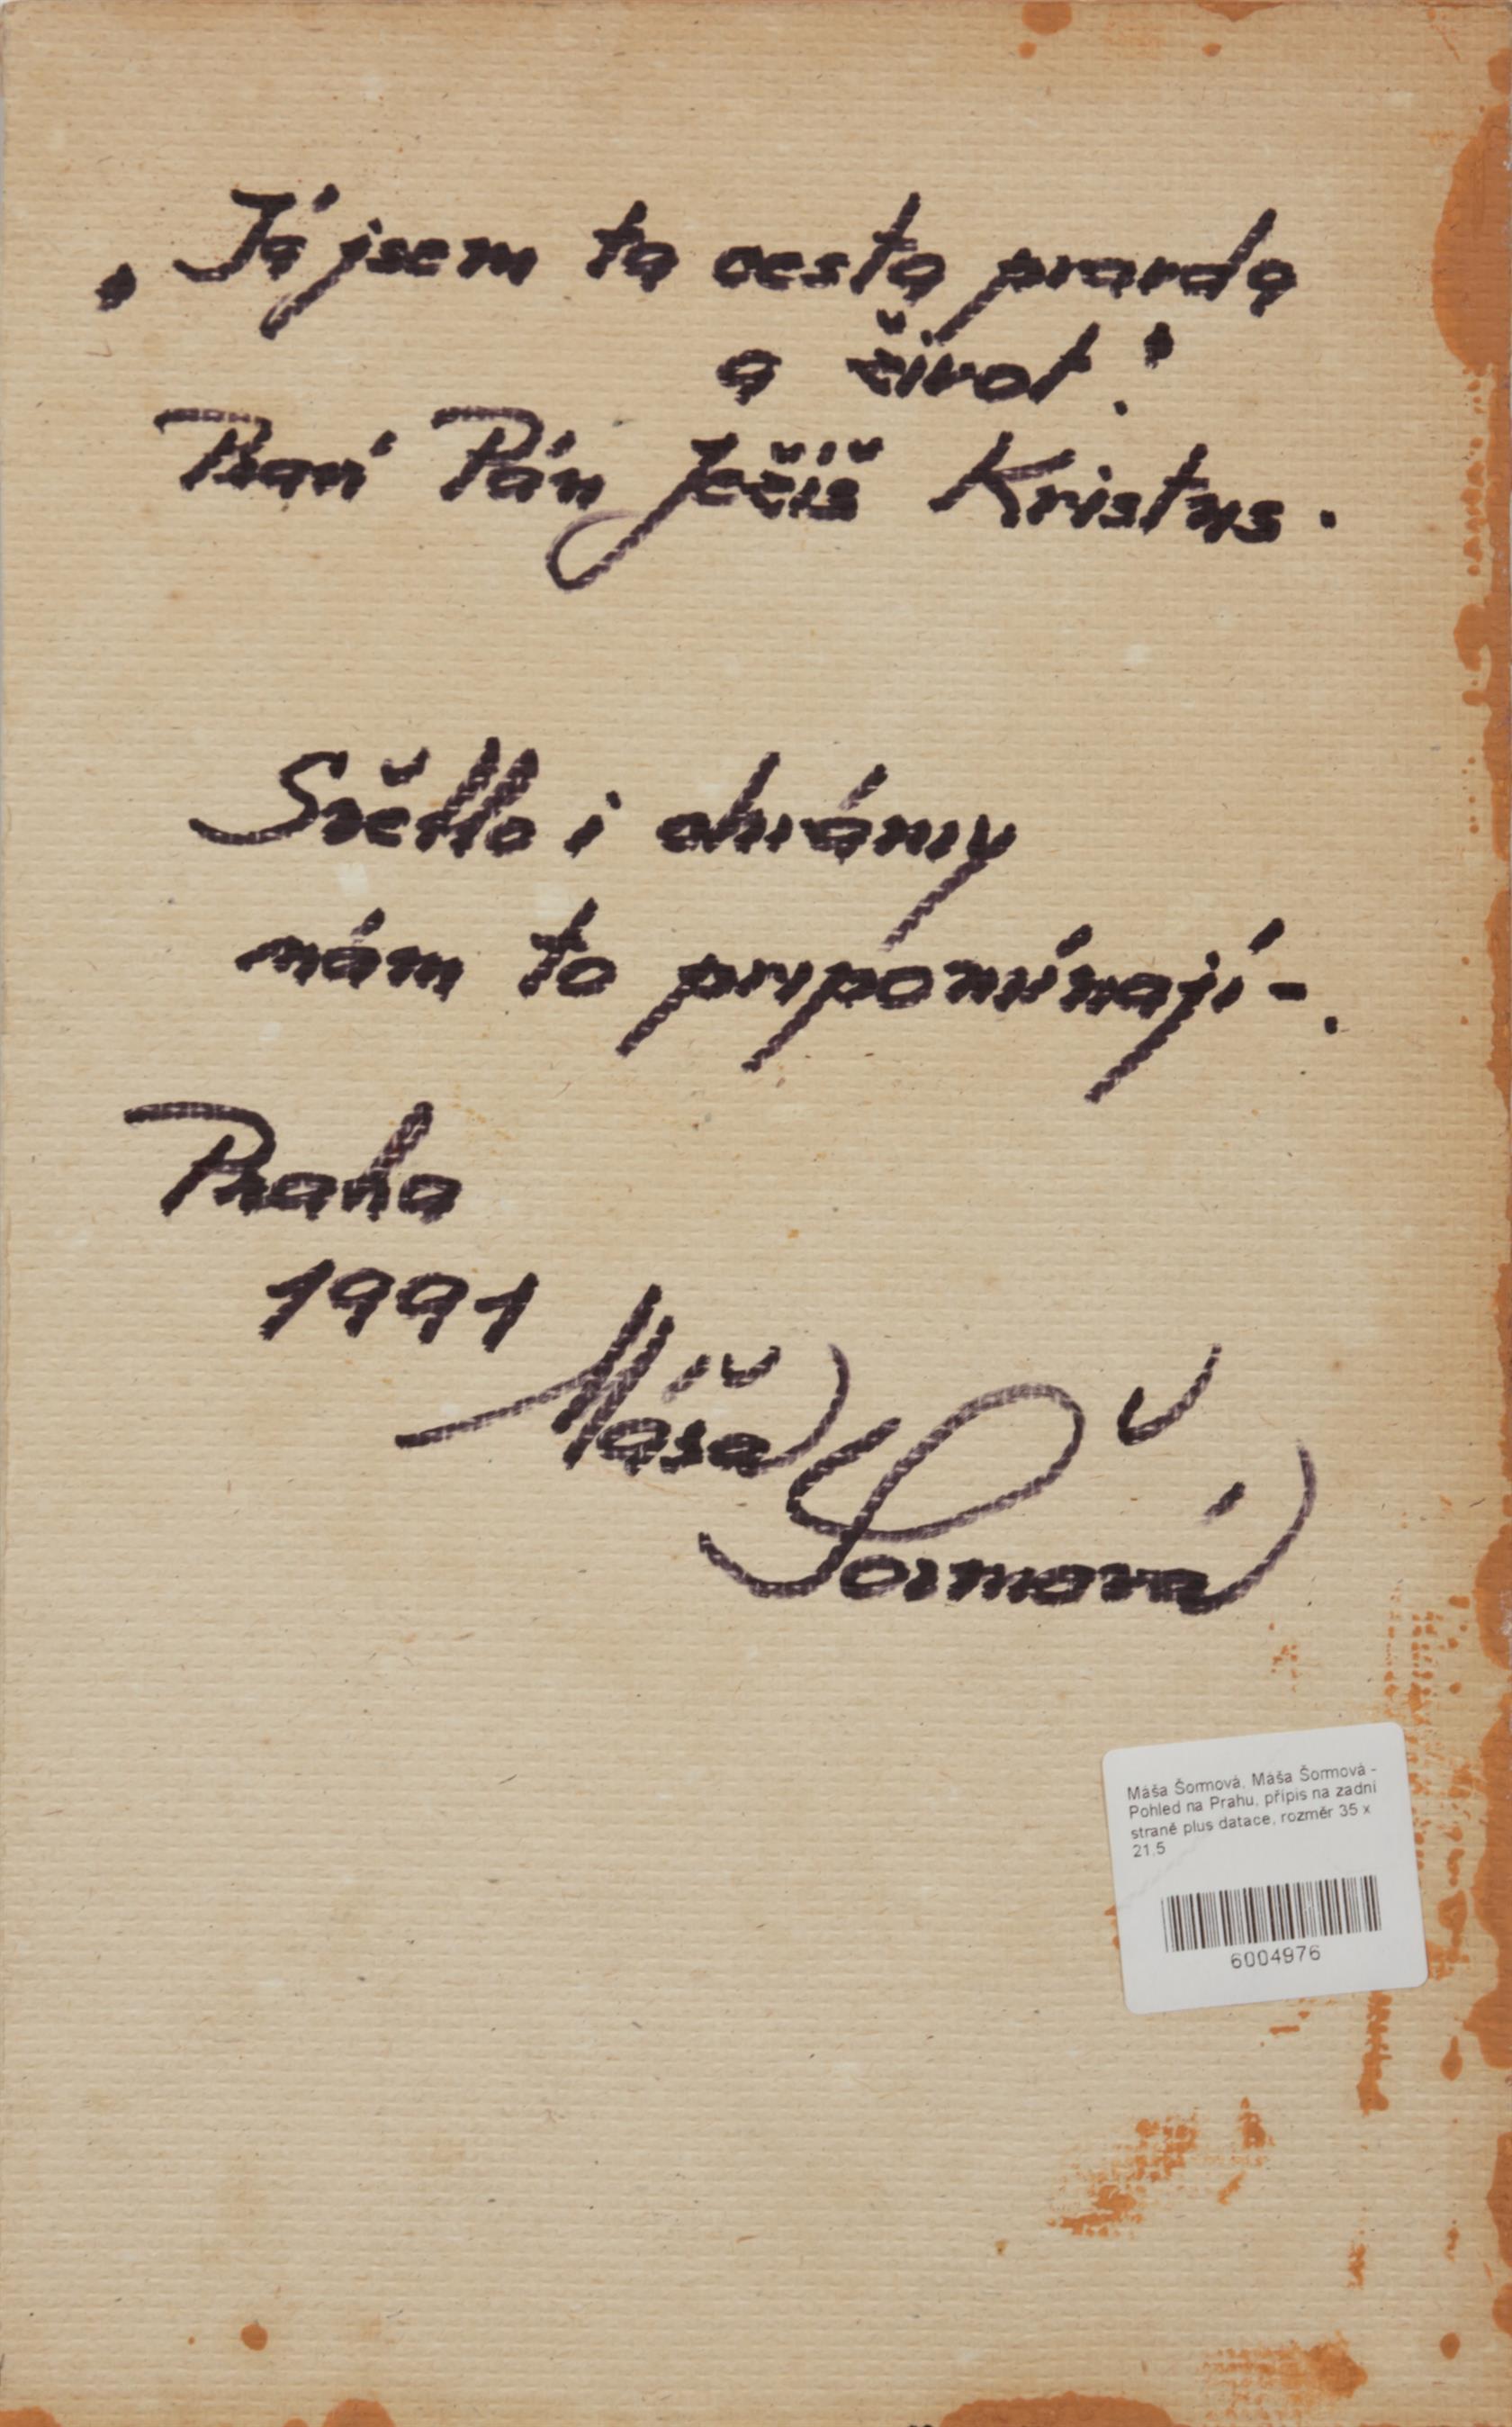 „Já jsem ta cesta pravda
a život."
Praví Pán Ježíš Kristus.
Světlo i chrámy
nám to pripomínají-.
Praha
1991
Máša
Šormová
Máša Šormová, Máša Šormová -
Pohled na Prahu, přípis na zadní
straně plus datace, rozměr 35 x
21,5
6004976